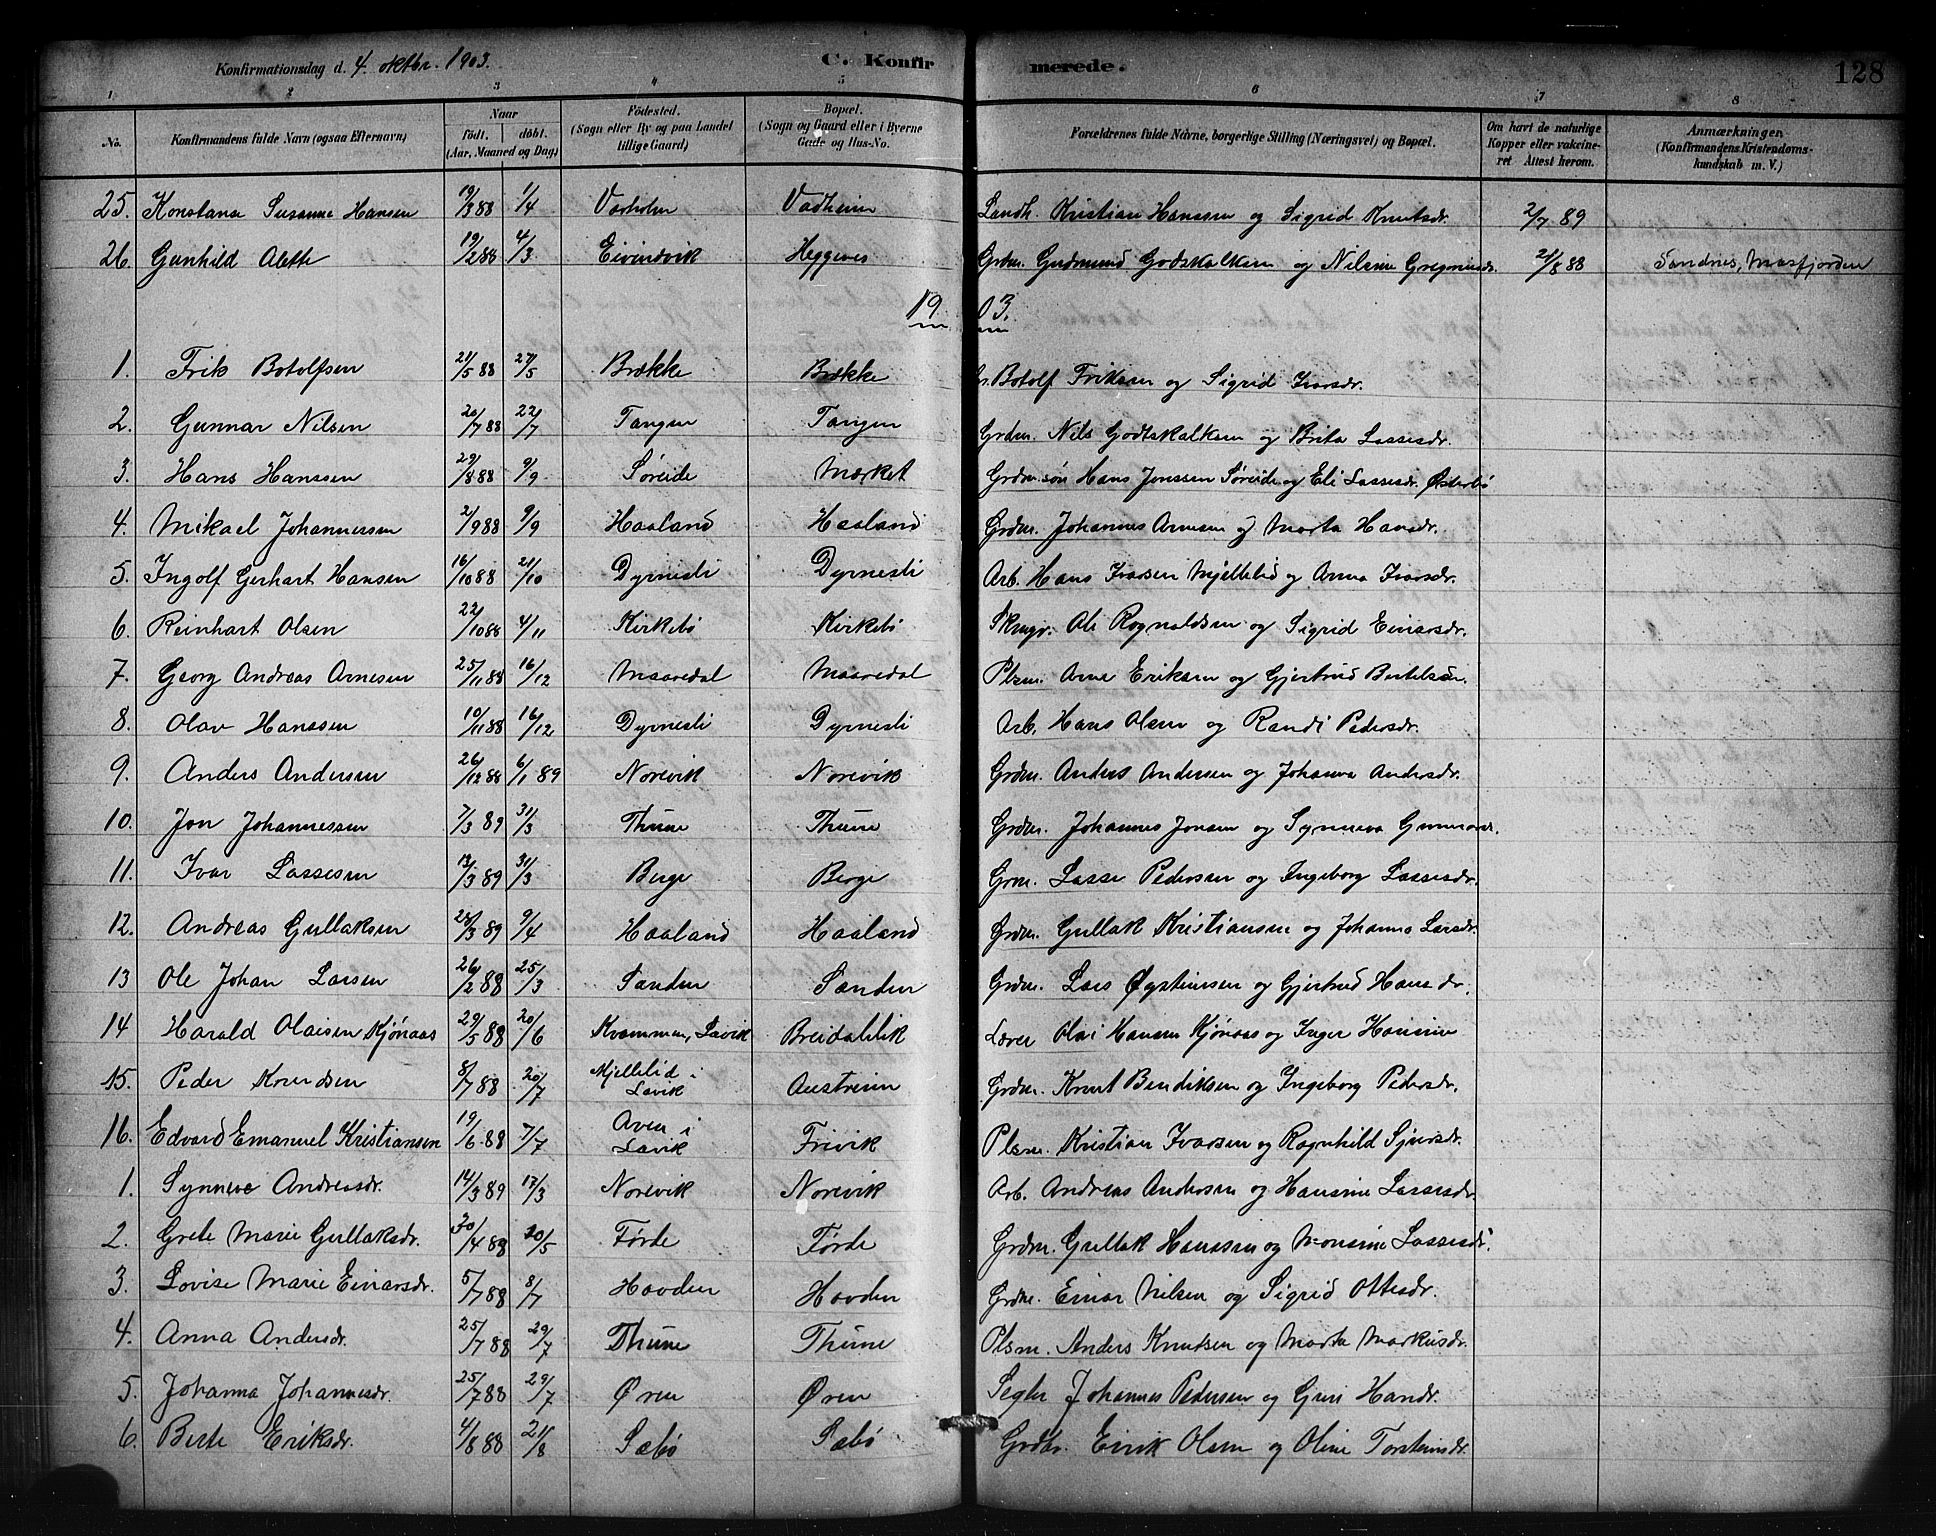 Konfirmationsdag d. 4 oktbr. 1903. C. Konfirmerede. 128
1 2 3 4 5 6 7 8
No. Konfirmandens fulde Navn (ogsaa Efternavn) Naar født. døbt. (Aar, Maaned og Dag) Fødested. (Sogn eller By og paa Landet tillige Gaard) Bopæl. (Sogn og Gaard eller i Byerne Gade og Hus-No. Forældrenes fulde Navne, borgerlige Stilling (Næringsvei) og Bopæl. Om havt de naturlige Kopper eller vakcineret Attest herom. Anmærkninger. (Konfirmandens Kristendomskundskab m. V.)
25. Konstanse Susanne Hansen 19/3 88 1/4 Vadheim Landh. Kristian Hanssen og Sigrid Knutsdr. 2/7 89
26. Gunhild Alette 19/2 88 4/3 Eivindvik Grdm. Gudmund Godskalksen og Nilsine 21/8 88 Sandnes, Masfjorden
1903.
1. Erik Botolfsen 21/5 88 27/5 Brække Brække Botolf Eriksen og Sigrid Ivarsdr.
2. Gunnar Nilsen 20/7 88 22/7 Tangen Tangen Grdm. Nils Godtskalksen og Brita Lassesdr.
3. Hans Hanssen 29/8 88 9/9 Søreide Mærket Grdm. søn Hans Jonssen Søreide og Eli Lassesdr. Østerbø
4. Mikael Johannessen 2/9 88 9/9 Haaland Haaland Grdm. Johannes Arnesen og Marta Hansdr.
5. Ingolf Gerhart Hansen 16/10 88 21/10 Dyrnesli Dyrnesli Arb. Hans Ivarsen Mjellelid og Anna Ivarsdr.
6. Reinhart Olsen 22/10 88 4/11 Kirkebø Kirkebø Ole Rognaldsen og Sigrid Einarsdr.
7. Georg Andreas Arnesen 25/11 88 16/12 Maaredal Maaredal Plsm. Arne Eriksen og Gjertrud Bertelsdr.
8. Olav Hanssen 10/11 88 16/12 Dyrnesli Dyrnesli Arb. Hans Olsen og Randi Pedersdr.
9. Anders Andersen 26/12 88 6/1 89 Norevik Norevik Grdm. Anders Andersen og Johanna Andersdr.
10. Jon Johannessen 7/3 89 31/3 Thune Thune Grdm. Johannes Jonsen og Synneva Gunnarsdr.
11. Ivar Lassesen 13/3 89 31/3 Berge Berge Grm. Lasse Pederssen og Ingeborg Lassesdr.
12. Andreas Gullaksen 24/3 89 9/4 Haaland Haaland Grdm. Gullak Kristiansen og Johanna Larsdr.
13 Ole Johan Larsen 26/2 88 25/3 Sanden Sanden Grdm. Lars Øysteinsen og Gjertrud Hansdr.
14 Harald Olaisen Kjønaas 29/5 88 20/6 Kvammen, Lavik Breidablik Lærer Olai Hansen Kjønaas og Inger Hansine
15. Peder Knudsen 8/7 88 20/7 Mjellelid i Lavik Austreim Grdm. Knut Bendiksen og Ingeborg Pedersdr.
16. Edvard Emanuel Kristiansen 19/6 88 7/7 Aven i Lavik Frivik Plsm. Kristian Ivarsen og Ragnhild Sjursdr.
1. Synneve Andreasdr. 14/3 89 17/3 Norevik Norevik Arb. Andreas Andersen og Hansine Lassesdr.
2. Grete Marie Gullaksdr. 30/4 88 20/5 Førde Førde Grdm. Gullak Hanssen og Monsine Lassesdr.
3. Lovise Marie Einarsdr. 5/7 88 8/7 Hovden Hovden Grdm. Einar Nilsen og Sigrid Ottesdr.
4. Anna Andersdr. 25/7 88 29/7 Thune Thune Plsm. Anders Knutsen og Marta Markusdr.
5. Johanna Johannesdr. 25/7 88 29/7 Øren Øren Johannes Pedersen og Guri Hansdr.
6. Berte Eriksdr. 4/8 88 21/8 Sæbø Sæbø Grdbr. Eirik Olsen og Oline Torsteinsdr.